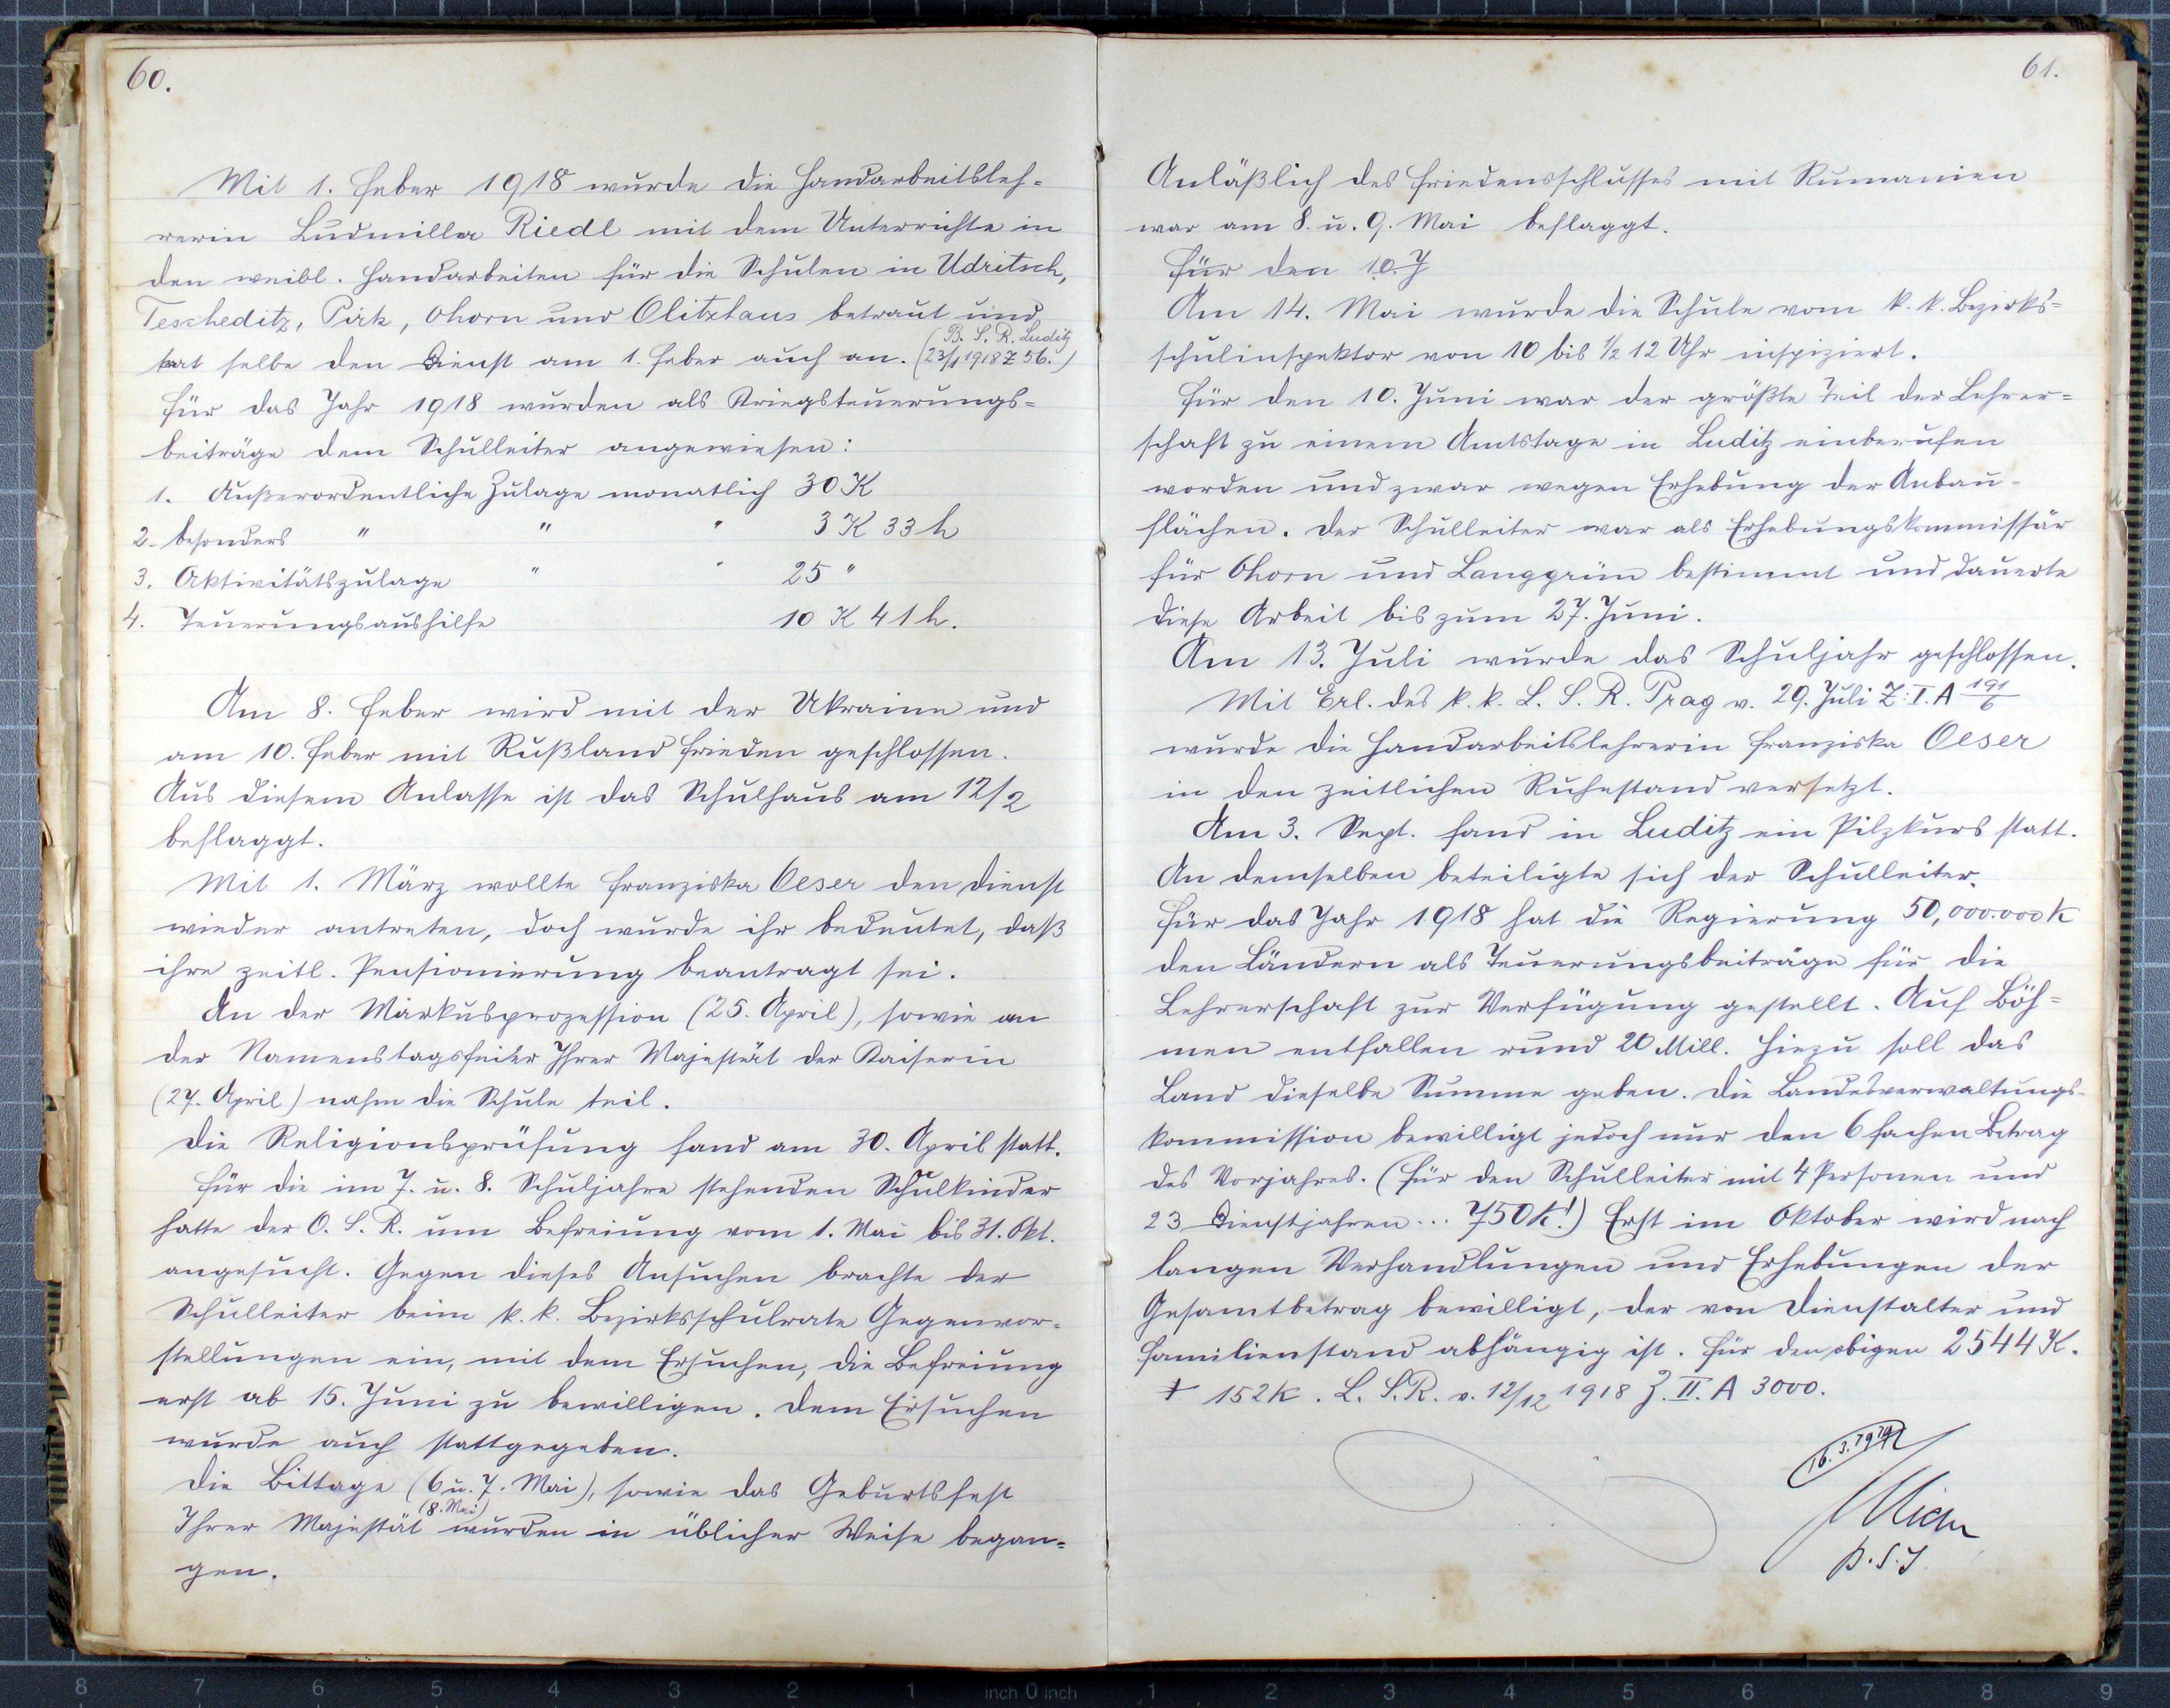 60.
Mit 1. Feber 1918 wurde die Handarbeitsleh-
rerin Ludmilla Riedl mit dem Unterrichte in
den weibl. Handarbeiten für die Schulen in Udritsch,
Tescheditz, Pirk, Ohorn und Olitzhaus betraut und
trat selbe den Dienst am 1. Feber auch an. (B. S. R. Luditz
23/1 1918 Z 56.)
Für das Jahr 1918 wurden als Kriegsteuerungs-
beiträge dem Schulleiter angewiesen:
1. Außerordentliche Zulage monatlich 30 K
2. besonders " " " 3 K 33 h
3. Aktivitätszulage " " 25 "
4. Teuerungsaushilfe 10 K 41 h.
Am 8. Feber wird mit der Ukraine und
am 10. Feber mit Rußland Frieden geschlossen.
Aus diesem Anlasse ist das Schulhaus am 12/2
beflaggt.
Mit 1. März wollte Franziska Oeser den Dienst
wieder antreten, doch wurde ihr bedeutet, daß
ihre zeitl. Pensionierung beantragt sei.
An der Markusprozession (25. April), sowie an
der Namenstagsfeier Ihrer Majestät der Kaiserin
(27. April) nahm die Schule teil.
Die Religionsprüfung fand am 30. April statt.
Für die im 7. u. 8. Schuljahre stehenden Schulkinder
hatte der O. S. R. um Befreiung vom 1. Mai bis 31. Okt.
angesucht. Gegen dieses Ansuchen brachte der
Schulleiter beim k. k. Bezirksschulrate Gegenvor-
stellungen ein, mit dem Ersuchen, die Befreiung
erst ab 15. Juni zu bewilligen. Dem Ersuchen
wurde auch stattgegeben.
Die Bittage (6 u. 7. Mai), sowie das Geburtsfest
Ihrer Majestät (8. Mai) wurden in üblicher Weise began-
gen.
61.
Anläßlich des Friedensschlusses mit Rumänien
war am 8. u. 9. Mai beflaggt.
Für den 10. J
Am 14. Mai wurde die Schule vom k. k. Bezirks-
schulinspektor von 10 bis ½ 12 Uhr inspiziert.
Für den 10. Juni war der größte Teil der Lehrer-
schaft zu einem Amtstage in Luditz einberufen
worden und zwar wegen Erhebung der Anbau-
flächen. Der Schulleiter war als Erhebungskommissär
für Ohorn und Langgrün bestimmt und dauerte
diese Arbeit bis zum 27. Juni.
Am 13. Juli wurde das Schuljahr geschlossen.
Mit Erl. des k. k. L. S. R. Prag v. 29. Juli Z: I. A 191/6
wurde die Handarbeitslehrerin Franziska Oeser
in den zeitlichen Ruhestand versetzt.
Am 3. Sept. fand in Luditz ein Pilzkurs statt.
An demselben beteiligte sich der Schulleiter.
Für das Jahr 1918 hat die Regierung 50,000.000 K
den Ländern als Teuerungsbeiträge für die
Lehrerschaft zur Verfügung gestellt. Auf Böh-
men entfallen rund 20 Mill. Hiezu soll das
Land dieselbe Summe geben. Die Landesverwaltungs-
kommission bewilligt jedoch nur den 6 fachen Betrag
des Vorjahres. (Für den Schulleiter mit 4 Personen und
23 Dienstjahren ... 750 K!) Erst im Oktober wird nach
langen Verhandlungen und Erhebungen der
Gesamtbetrag bewilligt, der von Dienstalter und
Familienstand abhängig ist. Für den obigen 2544 K.
+ 152 K. L. S. R. v. 12/12 1918 Z. II. A 3000.
16.3.1919